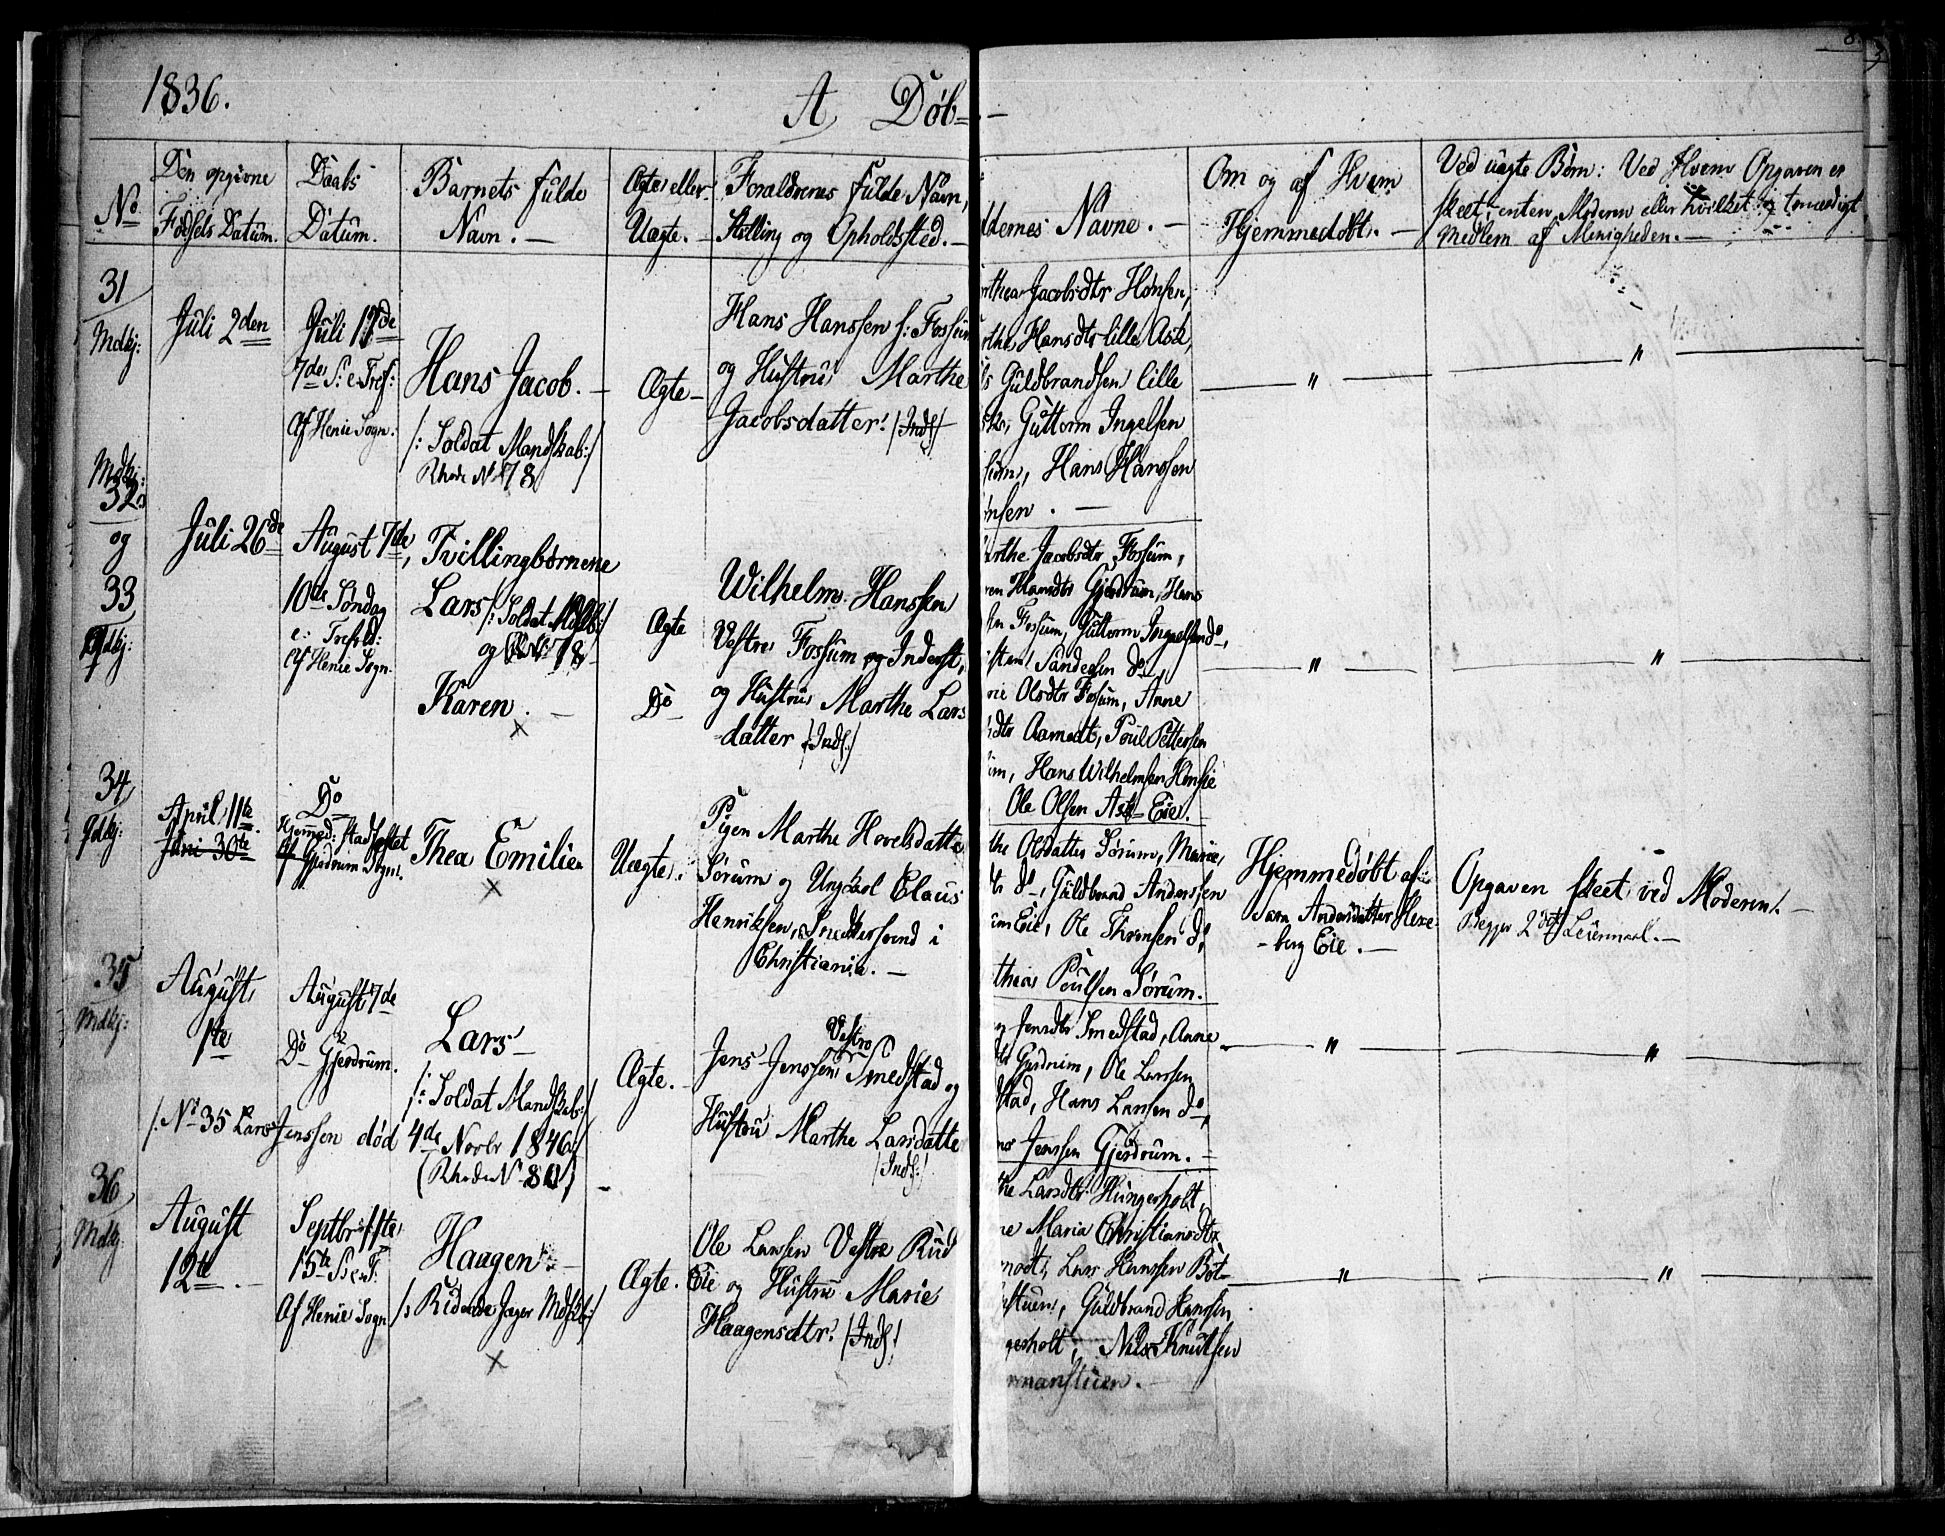 1836.
A Døb=
No
Den opgivne
Fødsels Datum.
Daabs
Datum.
Barnets fulde
Navn. —
Ægte eller
Uægte. —
Forældrenes fulde Navn,
Stilling og Opholdssted. —
ddernes Navne. —
Om og af Hvem
Hjemmedøbt. —
Ved uægte Børn: Ved Hvem Opgaven er
skeet, enten Moderen eller hvilket
Medlem af Menigheden. —
31
Mdkj:
Juli 2den
Juli 17de
7de S: e. Tref:
Af Henie Sogn.
Hans Jacob. —
/: Soldat Mandskab:/
Rhode No 78
Ægte —
Hans Hanssen
og Hustru Marthe
Jacobsdatter. /Inds/
rthea Jacobsdtr Hønsen,
rthe Hansdtr lille Ask,
ls Guldbrandsen lille
sk, Guttorm Ingelsen
sum, Hans Hanssen
ønsen. —
Mdkj:
32
og
33
Qdkj:
Juli 26de
August 7de,
10de Søndag
e: Trefold:
Af Henie Sogn.
Tvillingbørnene
Lars /: Soldat
og
Karen. —
Ægte
Do
Wilhelm Hanssen
Vestre Fossum Inderst,
og Hustru Marthe Lars
=datter /:Inds:/
arthe Jacobsdtr Fossum,
ren Hansdtr Gjerdrum, Hans
sen Fossum, Guttorm Ingelsen do,
isten Sandersen do,
rie Olsdtr Fossum, Anne
sdtr Aamodt, Poul Pettersen
um, Hans Wilhelmsen Hønsie
Ole Olsen Ask Eie.
34
Qdkj:
April 11te
Juni 30te
Do
Hjemmed: stadfæstet
Af Gjerdrum Sogn.
Thea Emilie
Uægte.
Pigen Marthe Hovelsdatte
Sørum og Ungkarl Claus
Henriksen, Snedkersvend i
Christiania. —
the Olsdatter Sørum, Marie
dtr do, Guldbrand Anderssen
um Eie, Ole Thronsen do,
thias Poulsen Sørum.
Hjemmedøbt af
Sara Andersdatter Hexe-
-berg Eie. —
Opgaven skeet ved Moderen. —
Begges 2det Leiermaal. —
35
Mdkj:
August
1te
August 7de
Do Gjerdrum.
Lars —
/: Soldat Mandskab:/
Ægte. —
Jens Jenssen Vestre Smedstad og
Hustru Marthe Larsdatte
/Inds:/
/: No 35 Lars Jenssen død 4de Novbr 1846
(Rhode No 80)
g Jensdtr Smedstad, Anne
dtr Gjerdrum, Ole Larssen
stad, Hans Larsen do,
ns Jenssen Gjerdrum. —
36
Mdkj
August
12te
Septbr
15te S: e. T:
Af Henie Sogn
Haagen. —
/: Ridende Jæger Mdskb:/
Ægte.
Ole Larsen Vestre Rud
Eie og Hustru Marie
Haagensdtr. /Inds/
the Larsdtr Hungerholt,
ne Maria Christiansdtr
modt, Lars Hanssen Bøt-
stuen, Guldbrand Hanssen
gerholt, Nils Knutsen
rmanstuen. —